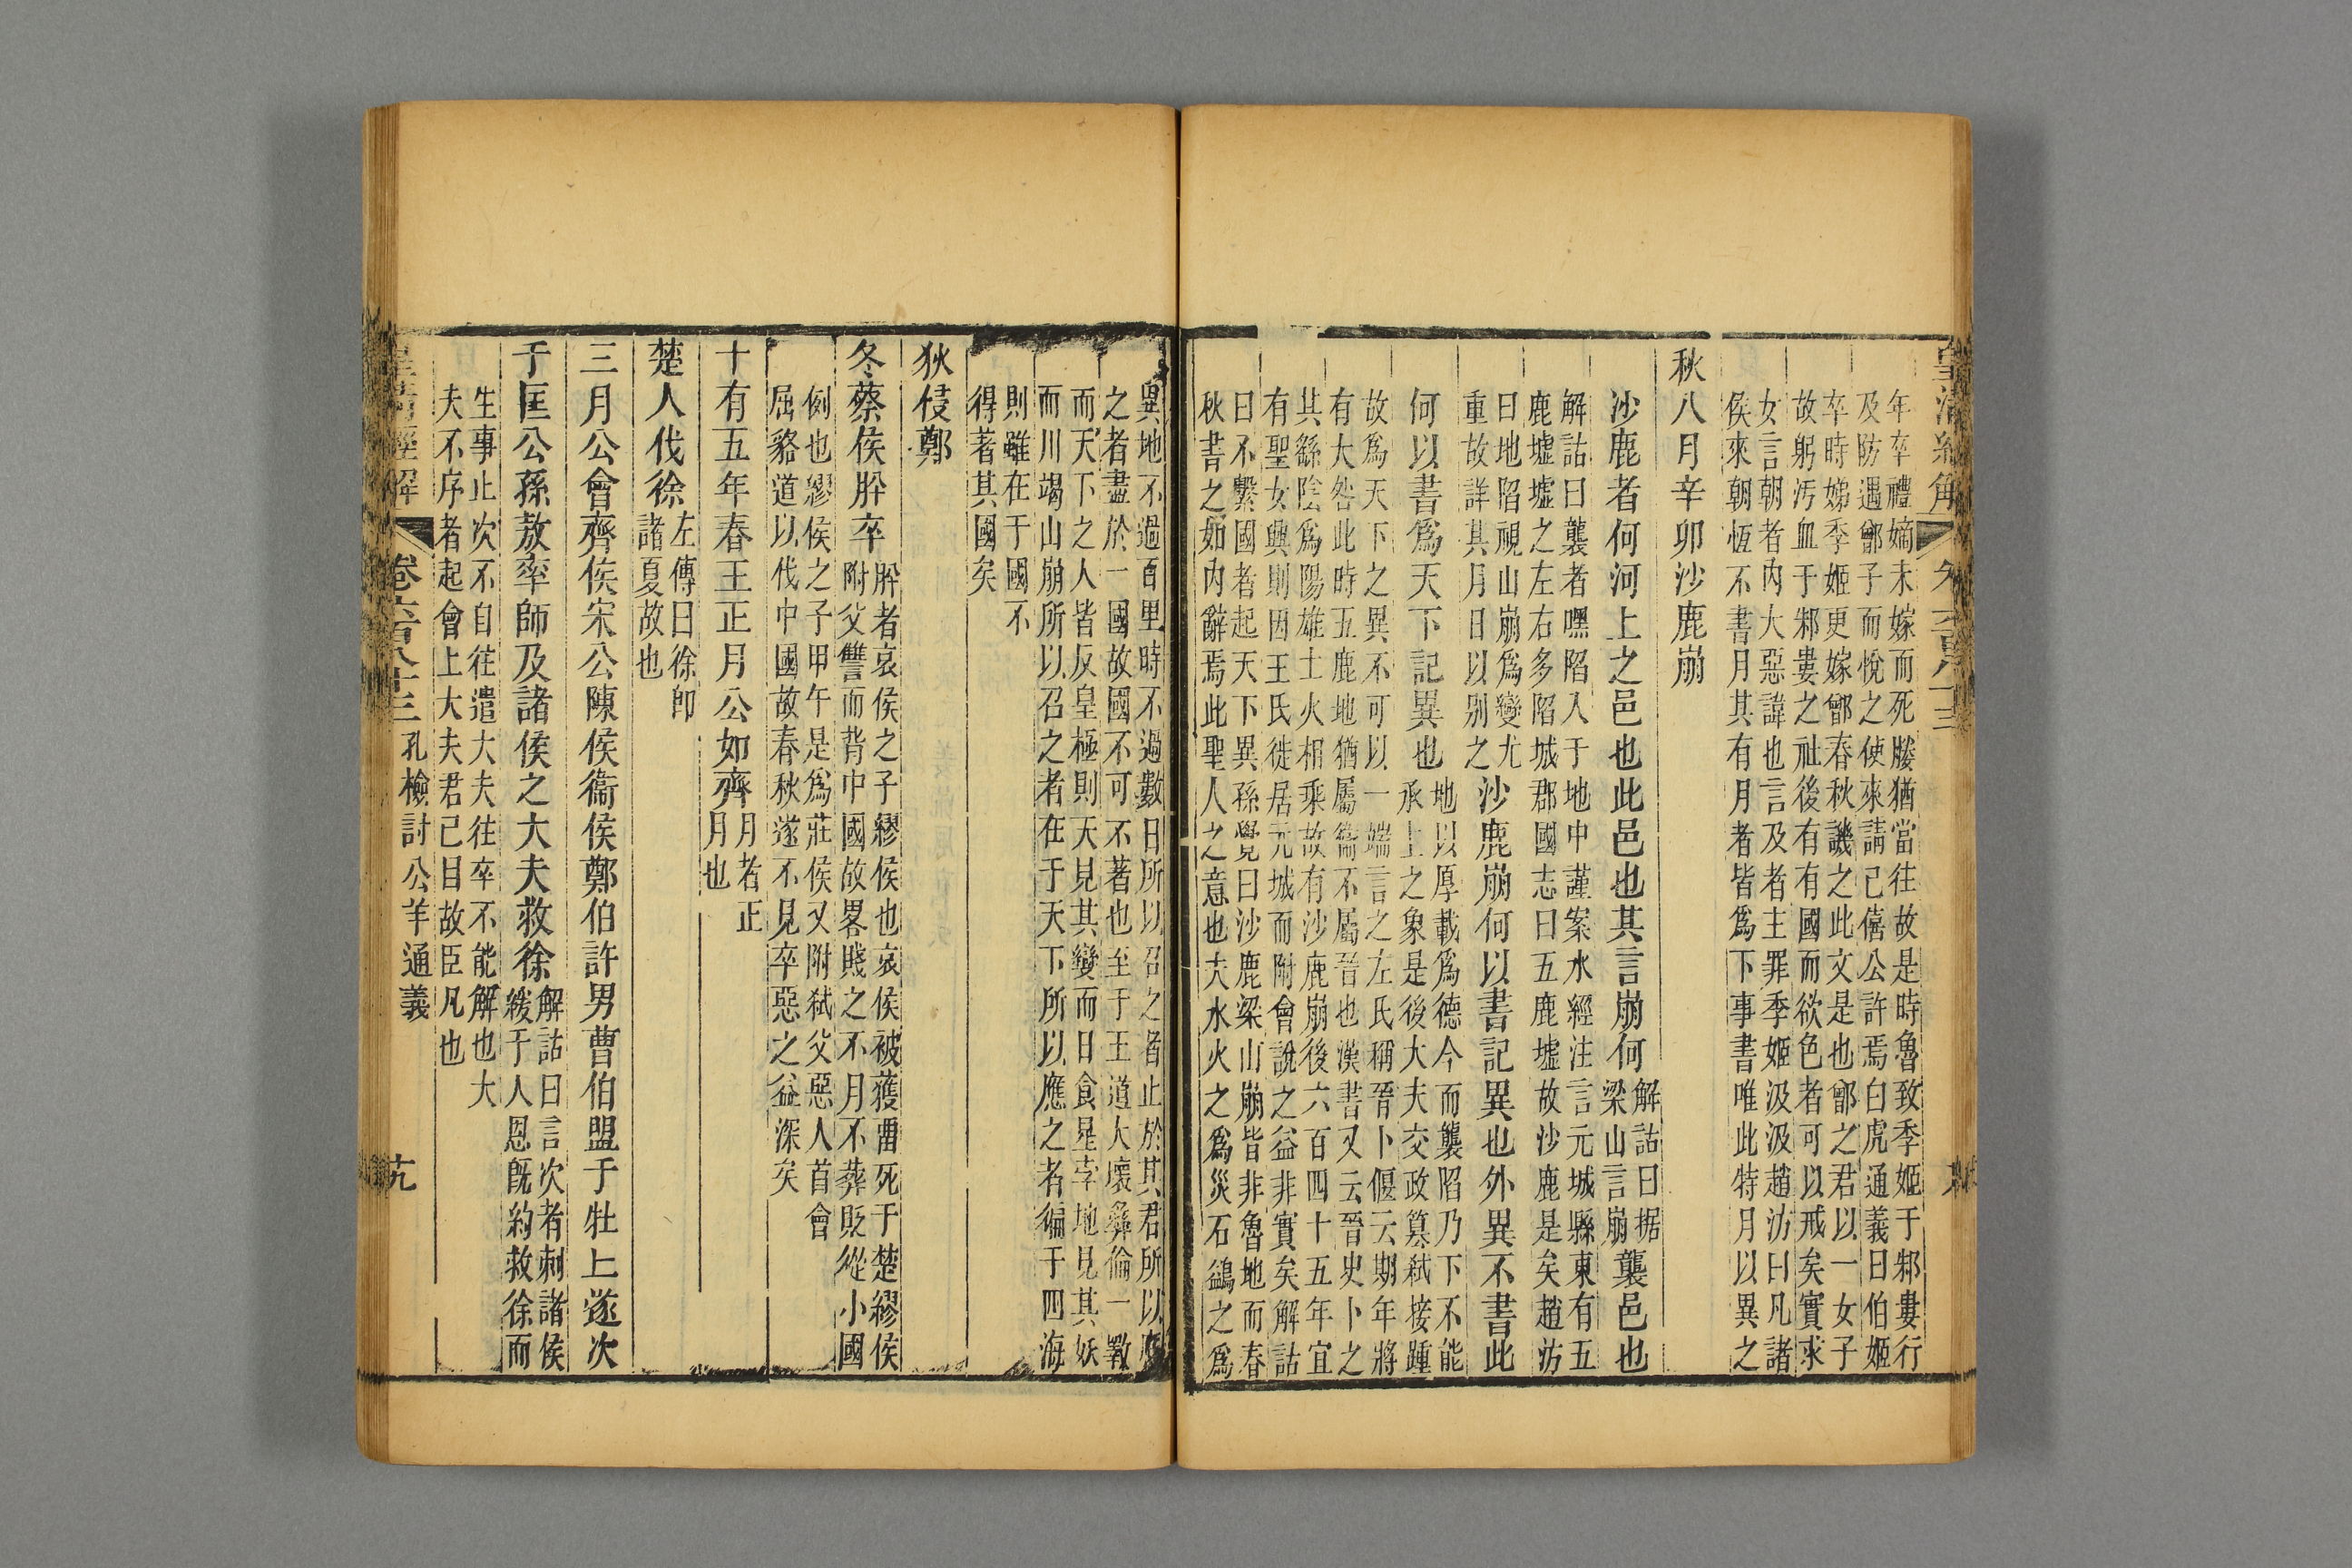 年卒禮嫡未嫁而死媵猶當往故是時魯致季姬于邾婁行
及防遇鄫子而悅之使來請己僖公許焉白虎通義曰伯姬
卒時娣季姬更嫁鄫春秋譏之此文是也鄫之君以一女子
故躬汚血于邾婁之社後有有國而欲色者可以戒矣實求
女言朝者內大惡諱也言及者主罪季姬汲汲趙汸曰凡諸
侯來朝恆不書月其有月者皆爲下事書唯此特月以異之
秋八月辛卯沙鹿崩
沙鹿者何河上之邑也此邑也其言崩何
解詁曰据
梁山言崩
襲邑也
解詁曰襲者嘿陷入于地中謹案水經注言元城縣東有五
鹿墟墟之左右多陷城郡國志曰五鹿墟故沙鹿是矣趙汸
曰地陷視山崩爲變尤
重故詳其月日以别之
沙鹿崩何以書記異也外異不書此
何以書爲天下記異也
地以厚載爲德今而襲陷乃下不能
承上之象是後大夫交政篡弒接踵
故爲天下之異不可以一端言之左氏稱晉卜偃云期年將
有大咎此時五鹿地猶屬衞不屬晉也漢書又云晉史卜之
其繇陰爲陽雄土火相乘故有沙鹿崩後六百四十五年宜
有聖女興則因王氏徙居元城而附會說之益非實矣解詁
曰不繫國者起天下異孫覺曰沙鹿梁山崩皆非魯地而春
秋書之如內辭焉此聖人之意也夫水火之爲災石鷁之爲
異地不過百里時不過數日所以召之者止於其君所以應
之者盡於一國故國不可不著也至于王道大壞彝倫一斁
而天下之人皆反皇極則天見其變而日食星孛地見其妖
而川竭山崩所以召之者在于天下所以應之者徧于四海
則雖在于國不
得著其國矣
狄侵鄭
冬蔡侯肸卒
肸者哀侯之子繆侯也哀侯被獲畱死于楚繆侯
附父讐而背中國故畧賤之不月不葬貶從小國
例也繆侯之子甲午是爲莊侯又附弒父惡人首會
屈貉道以伐中國故春秋遂不見卒惡之益深矣
十有五年春王正月公如齊
月者正
月也
楚人伐徐
左傳曰徐卽
諸夏故也
三月公會齊侯宋公陳侯衞侯鄭伯許男曹伯盟于牡上遂次
于匡公孫敖率師及諸侯之大夫救徐
解詁曰言次者刺諸侯
緩于人恩旣約救徐而
生事止次不自往遣大夫往卒不能解也大
夫不序者起會上大夫君己目故臣凡也
孔檢討公羊通義